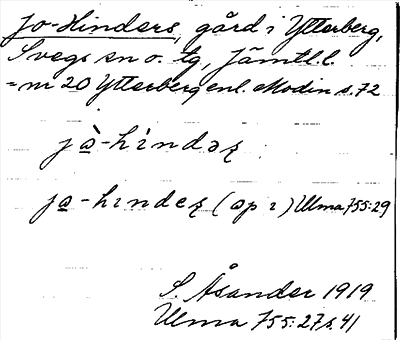 Jo-Hinders, gård i Ytterberg,
Svegs sn o. tg, Jämtl. l.
= nr 20 Ytterberg enl. Modin s. 72
jà̱-hìndəʂ
ja̱-hindeʂ (op i) Ulma 755:29
S. Åsander 1919
Ulma 755:27 s. 41